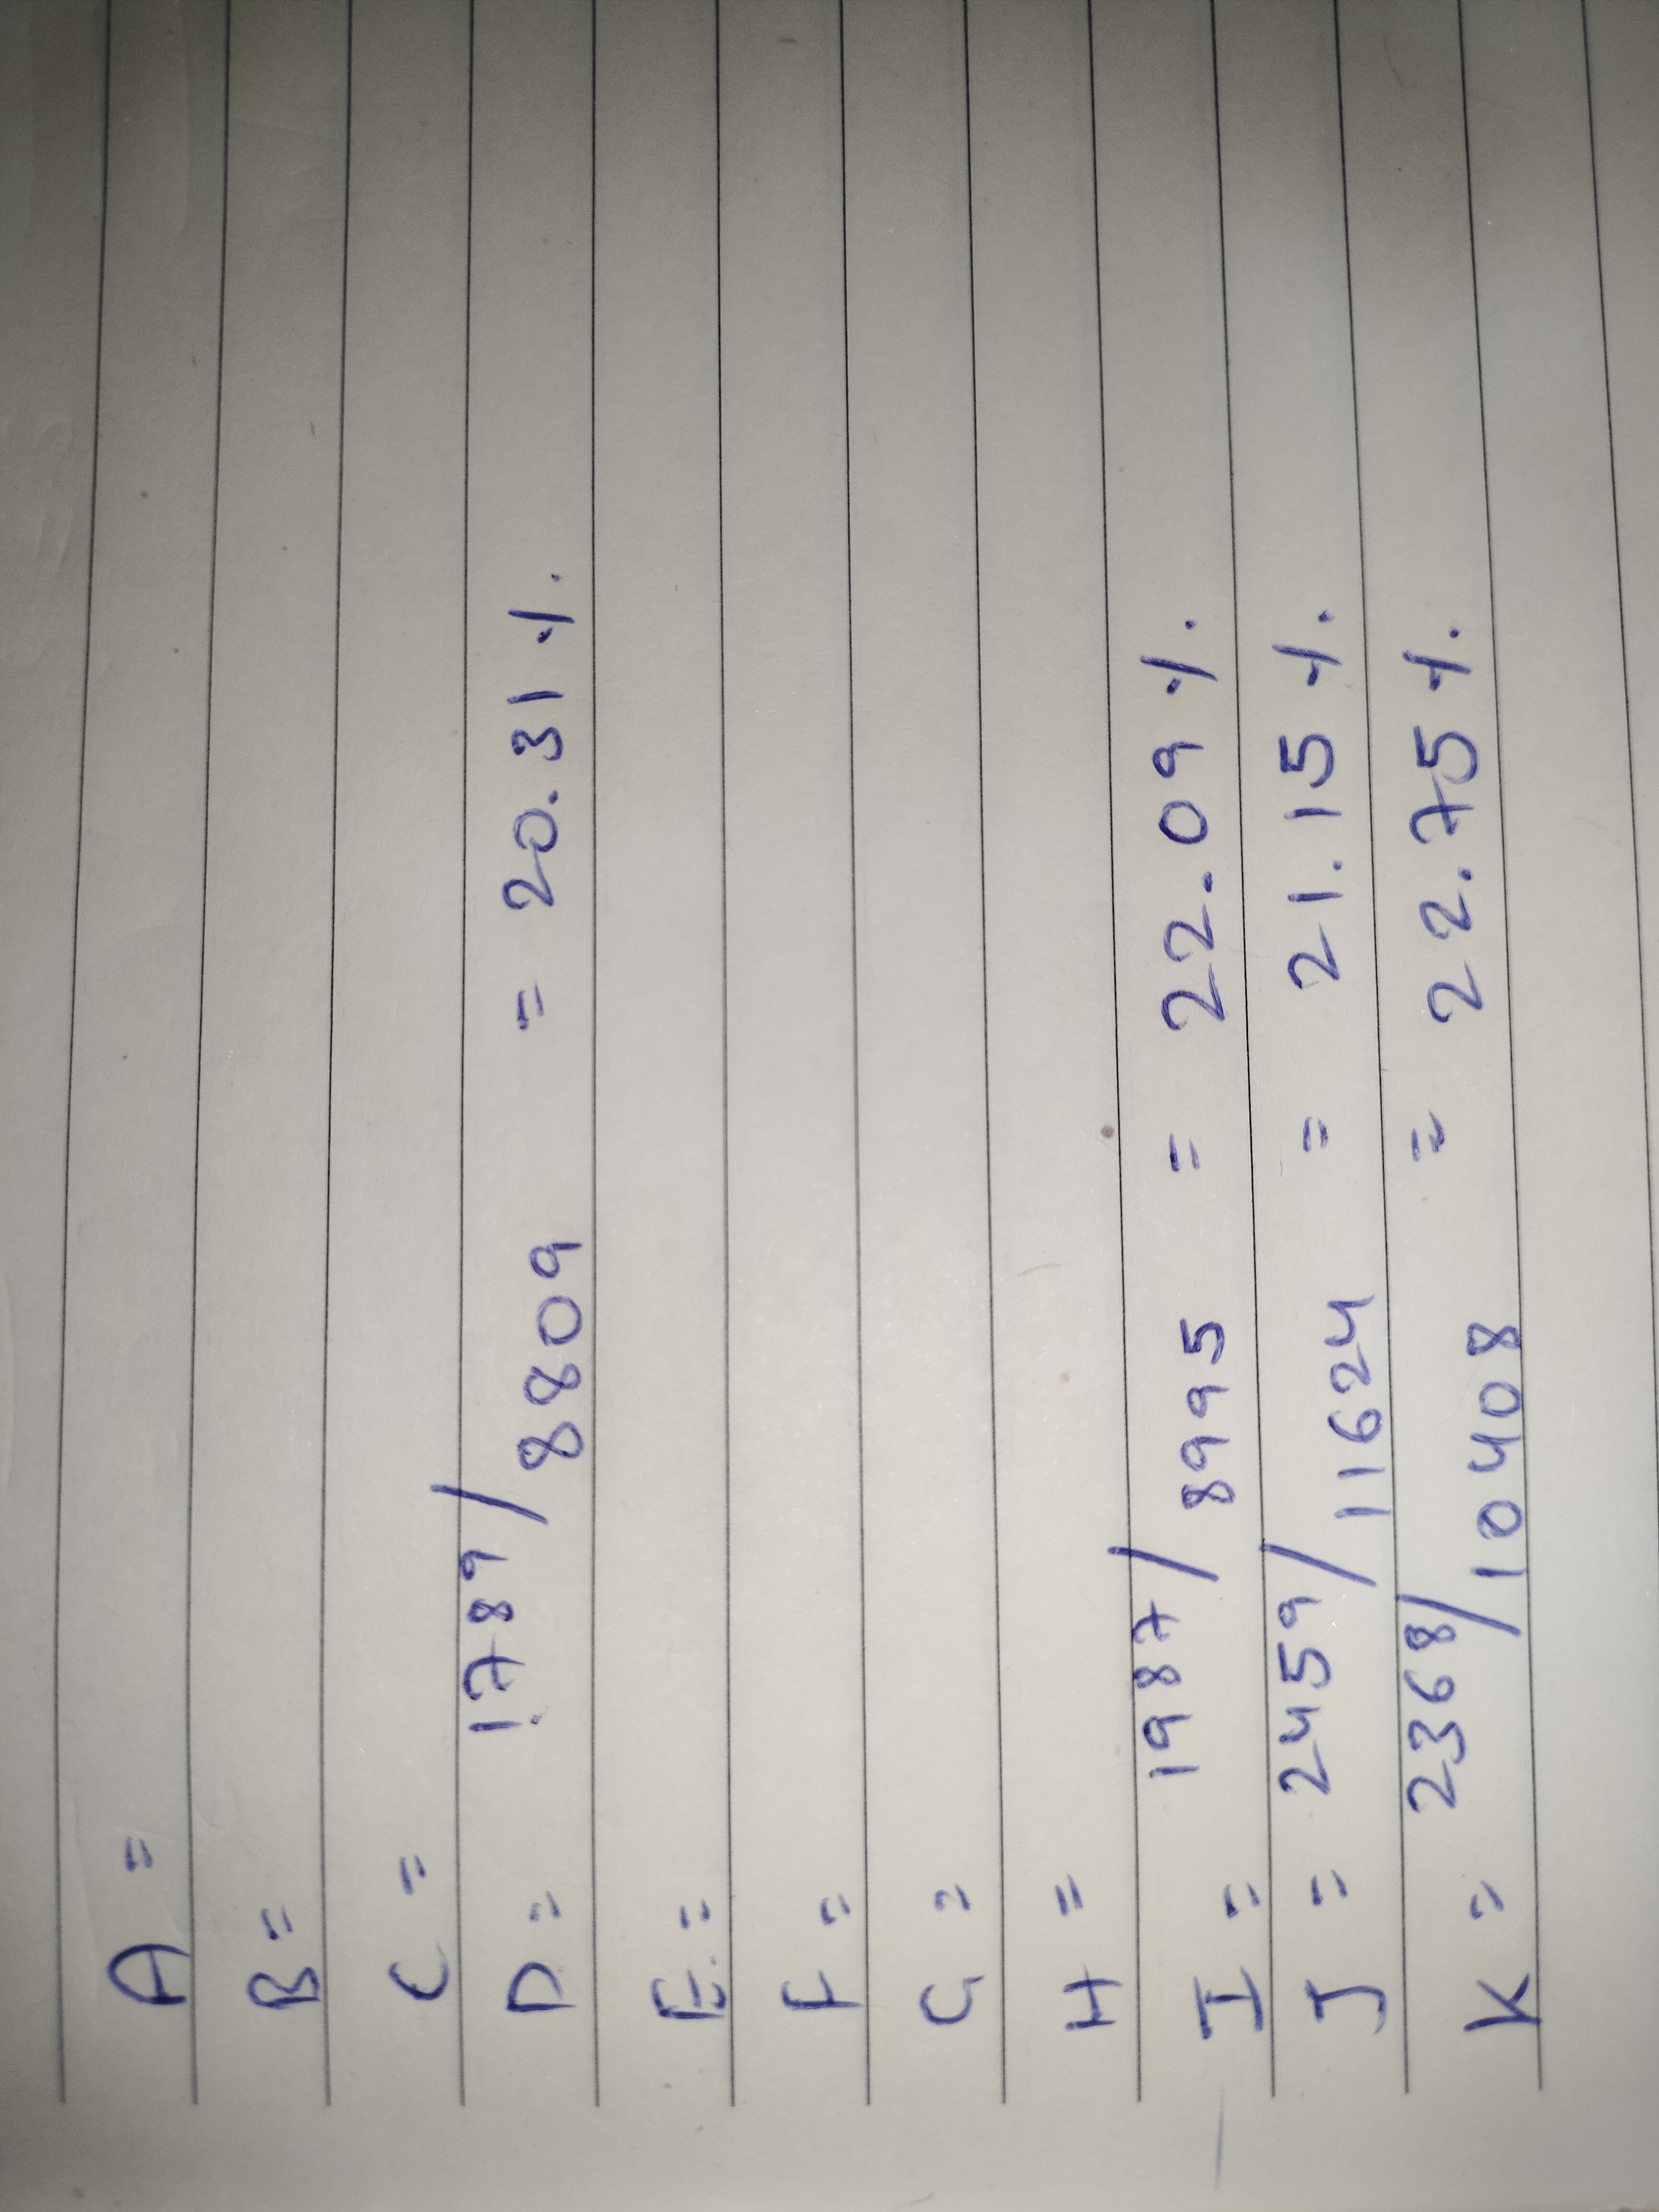 A =
B =
C =
D = 1789/8809 = 20.31 %
E =
F =
G =
H =
I = 1987/8995 = 22.09 %
J = 2459/11624 = 21.15 %
K = 2368/10408 = 22.75 %